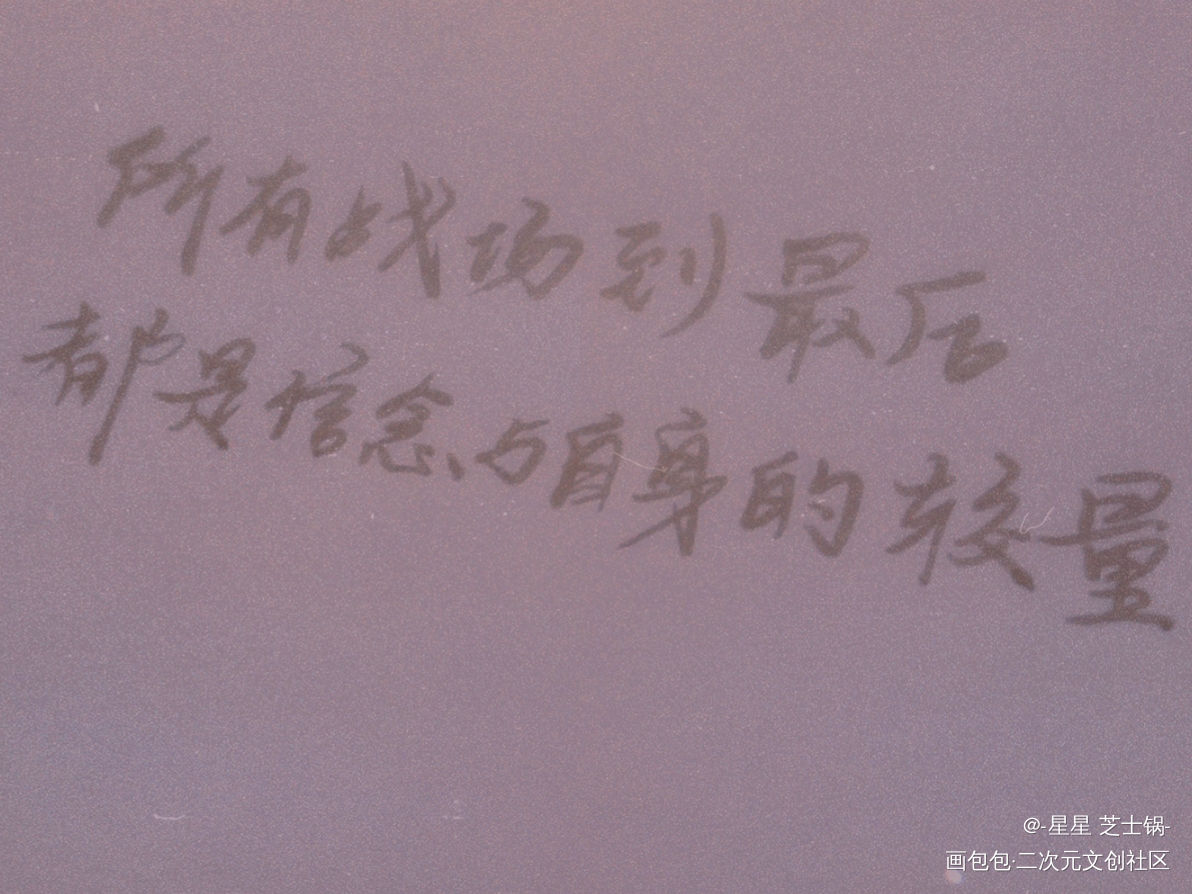 所有战场到最后
都是信念、与自身的较量
@-星星 芝士锅-
画包包·二次元文创社区